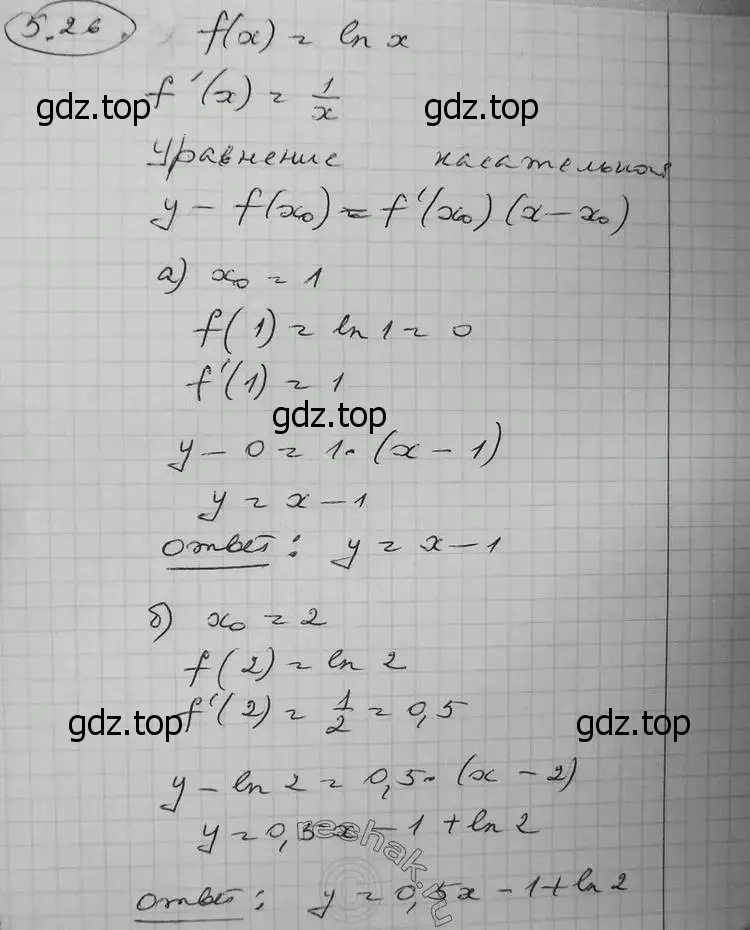 5.26. f(x) = ln x
gdz.top
f'(x) = 1/x
Уравнение касательной
y - f(x₀) = f'(x₀) (x - x₀)
а) x₀ = 1
f(1) = ln 1 = 0
f'(1) = 1
gdz.top
y - 0 = 1 · (x - 1)
y = x - 1
Ответ: y = x - 1
б) x₀ = 2
f(2) = ln 2
f'(2) = 1/2 = 0,5
gdz.top gdz.top
y - ln 2 = 0,5 · (x - 2)
y = 0,5x - 1 + ln 2
reshak.ru
Ответ: y = 0,5x - 1 + ln 2